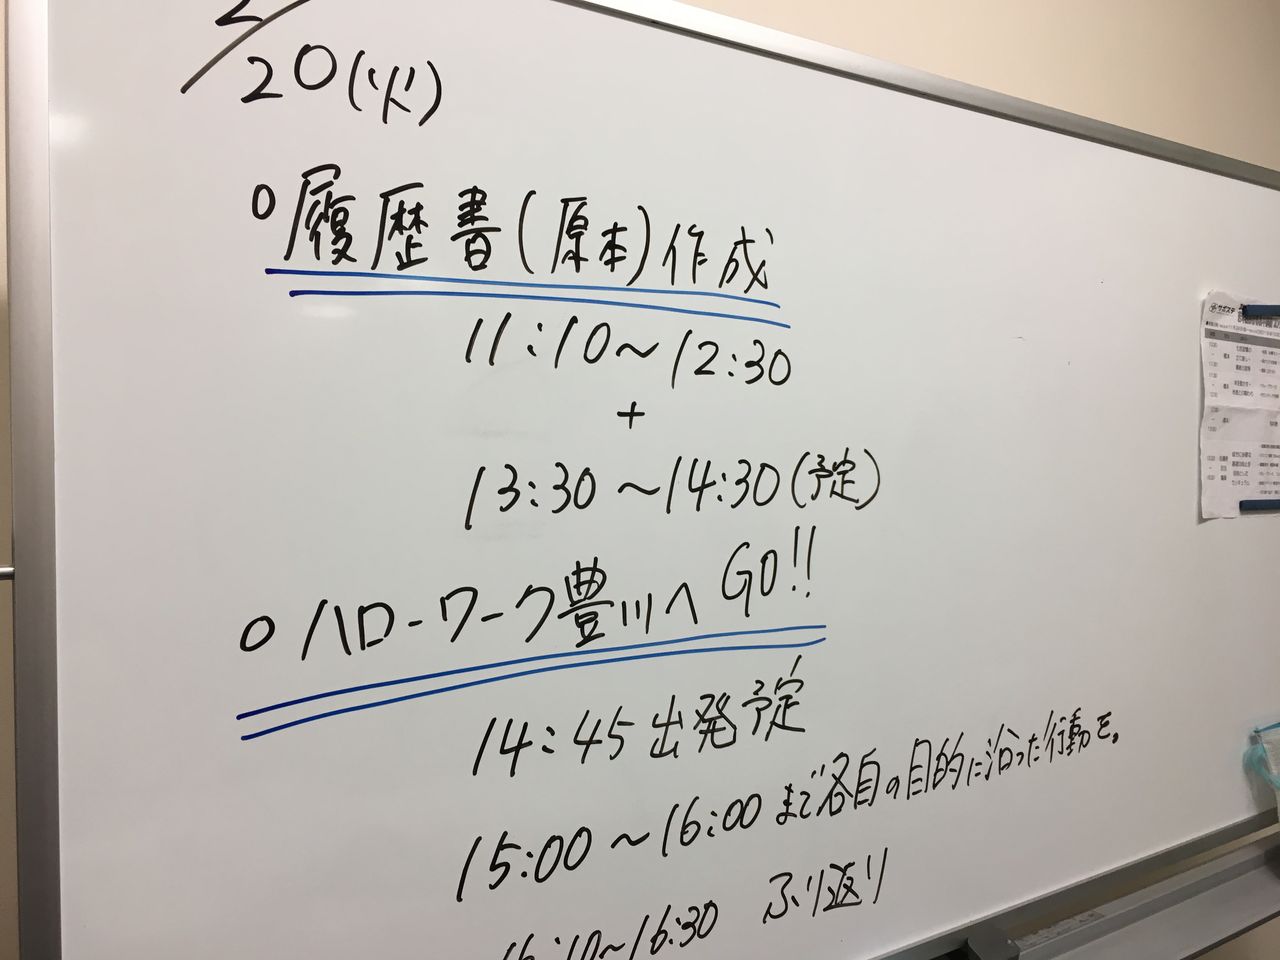 2/20(火)
○履歴書(原本)作成
11:10~12:30
+
13:30~14:30(予定)
○ハローワーク豊川へGO!!
14:45出発予定
15:00~16:00まで各自の目的に沿った行動を。
16:10~16:30 ふり返り
サポステ